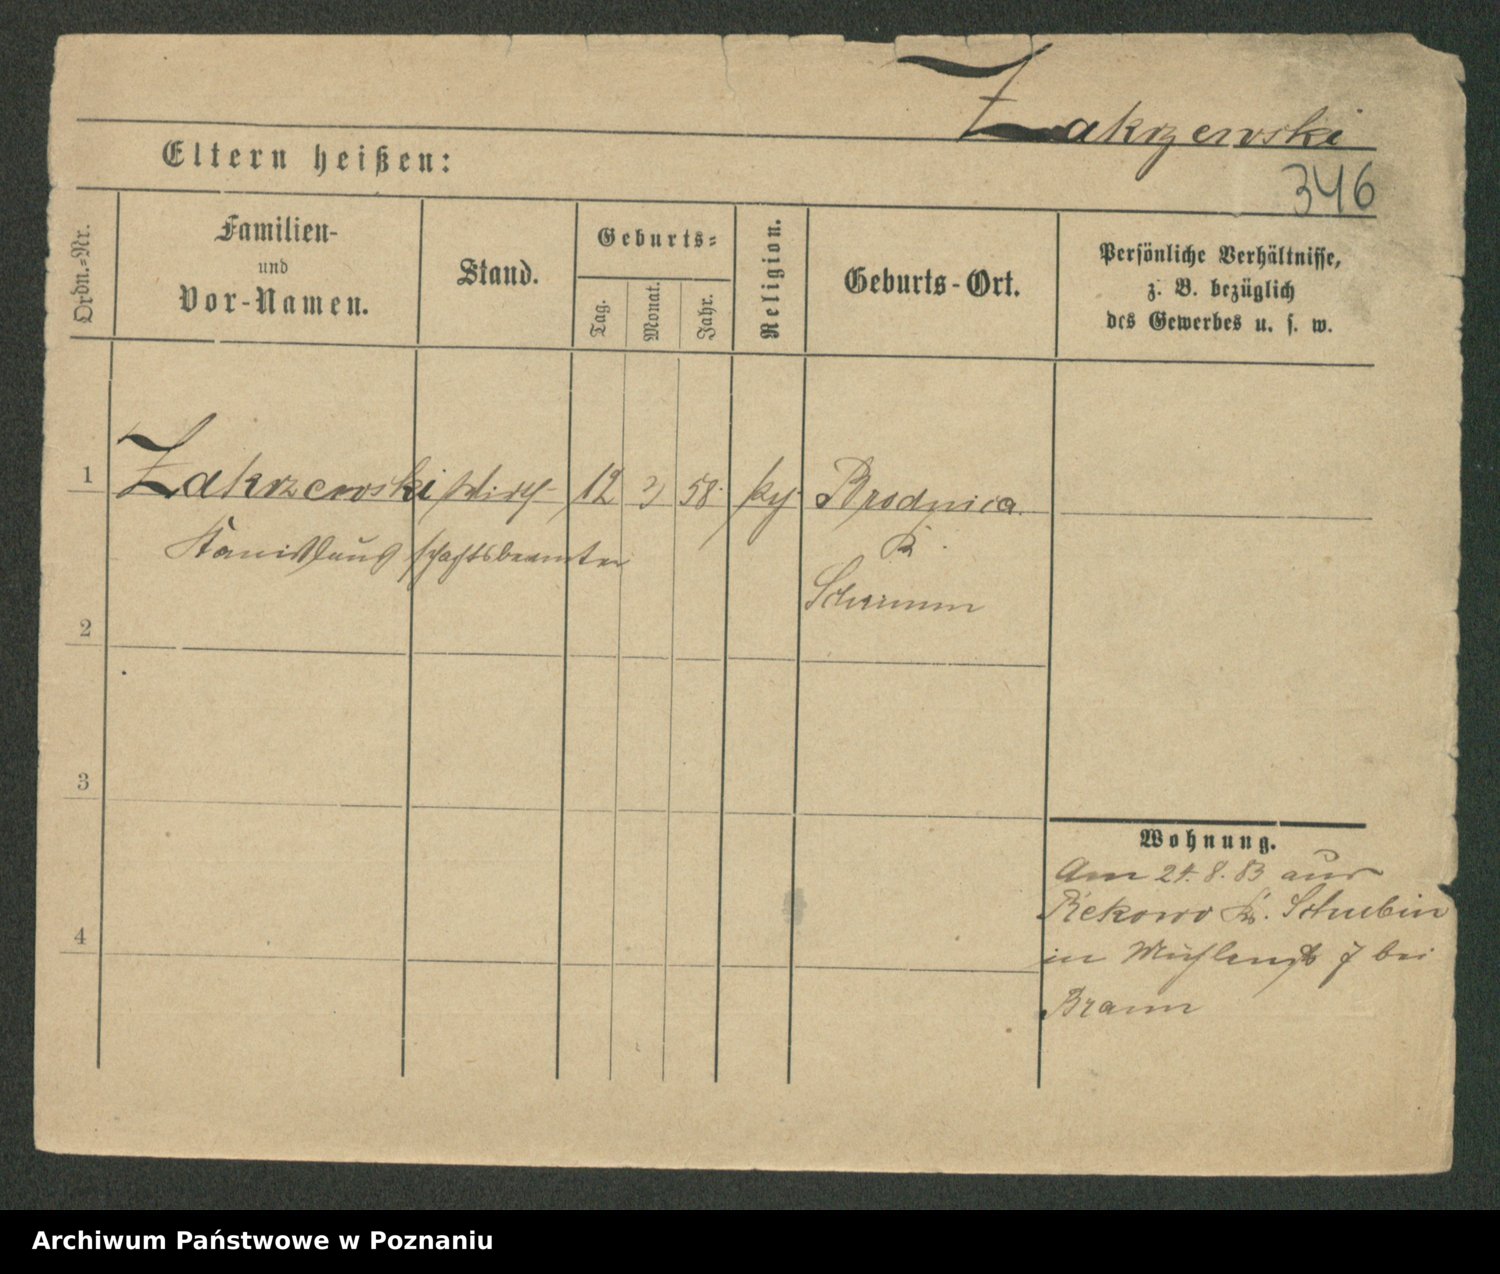 Zakrzewski
Eltern heißen:
346
Ordn.-Nr.
Familien-
und
Vor-Namen.
Stand.
Geburts-
Tag.
Monat.
Jahr.
Religion.
Geburts-Ort.
Persönliche Verhältnisse,
z. B. bezüglich
des Gewerbes u. s. w.
1 Zakrzewski Wirth- 12 3 58. Brodnica
Stanislaus schaftsbeamter K.
Schrimm
2
3
4
Wohnung.
Am 24.8.83 aus
Rekowo K. Schubin
in Mühlenst 7 bei
Braun
Archiwum Państwowe w Poznaniu